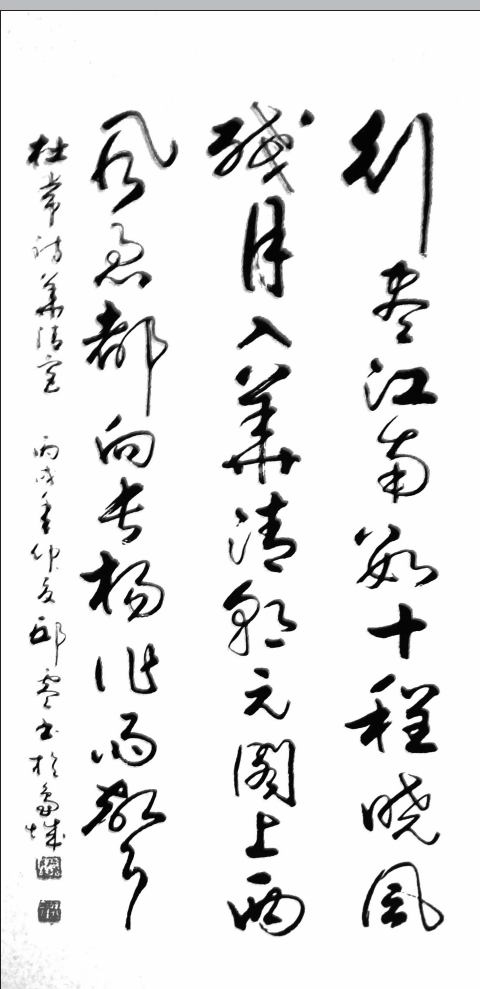 行盡江南數十程曉風
殘月入華清朝元閣上西
風急都向長楊作雨聲
杜常詩華清宮 丙戌年仲夏邱書於城